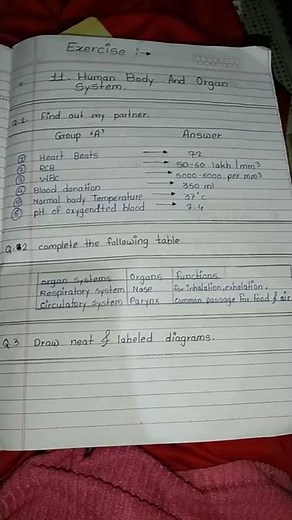 Exercise :→
11. Human Body And Organ
System.
Q.1 Find out my partner.
Group 'A' Answer
① Heart Beats → 72
② RCB → 50-60 lakh/mm³
③ WBC → 5000-6000 per mm³
④ Blood donation → 350 ml
⑤ Normal body Temperature → 37°C
⑥ pH of oxygendted blood → 7.4
Q.2 complete the following table
organ systems Organs functions
Respiratory System Nose For inhalation, exhalation.
Circulatory System Parynx Common passage for food & air
Q.3 Draw neat & labeled diagrams.